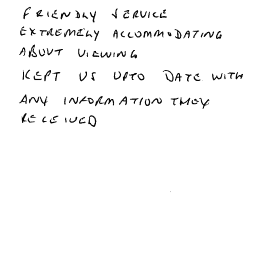 FRIENDLY SERVICE
EXTREMELY ACCOMMODATING
ABOUT VIEWING
KEPT US UPTO DATE WITH
ANY INFORMATION THEY
RECEIVED